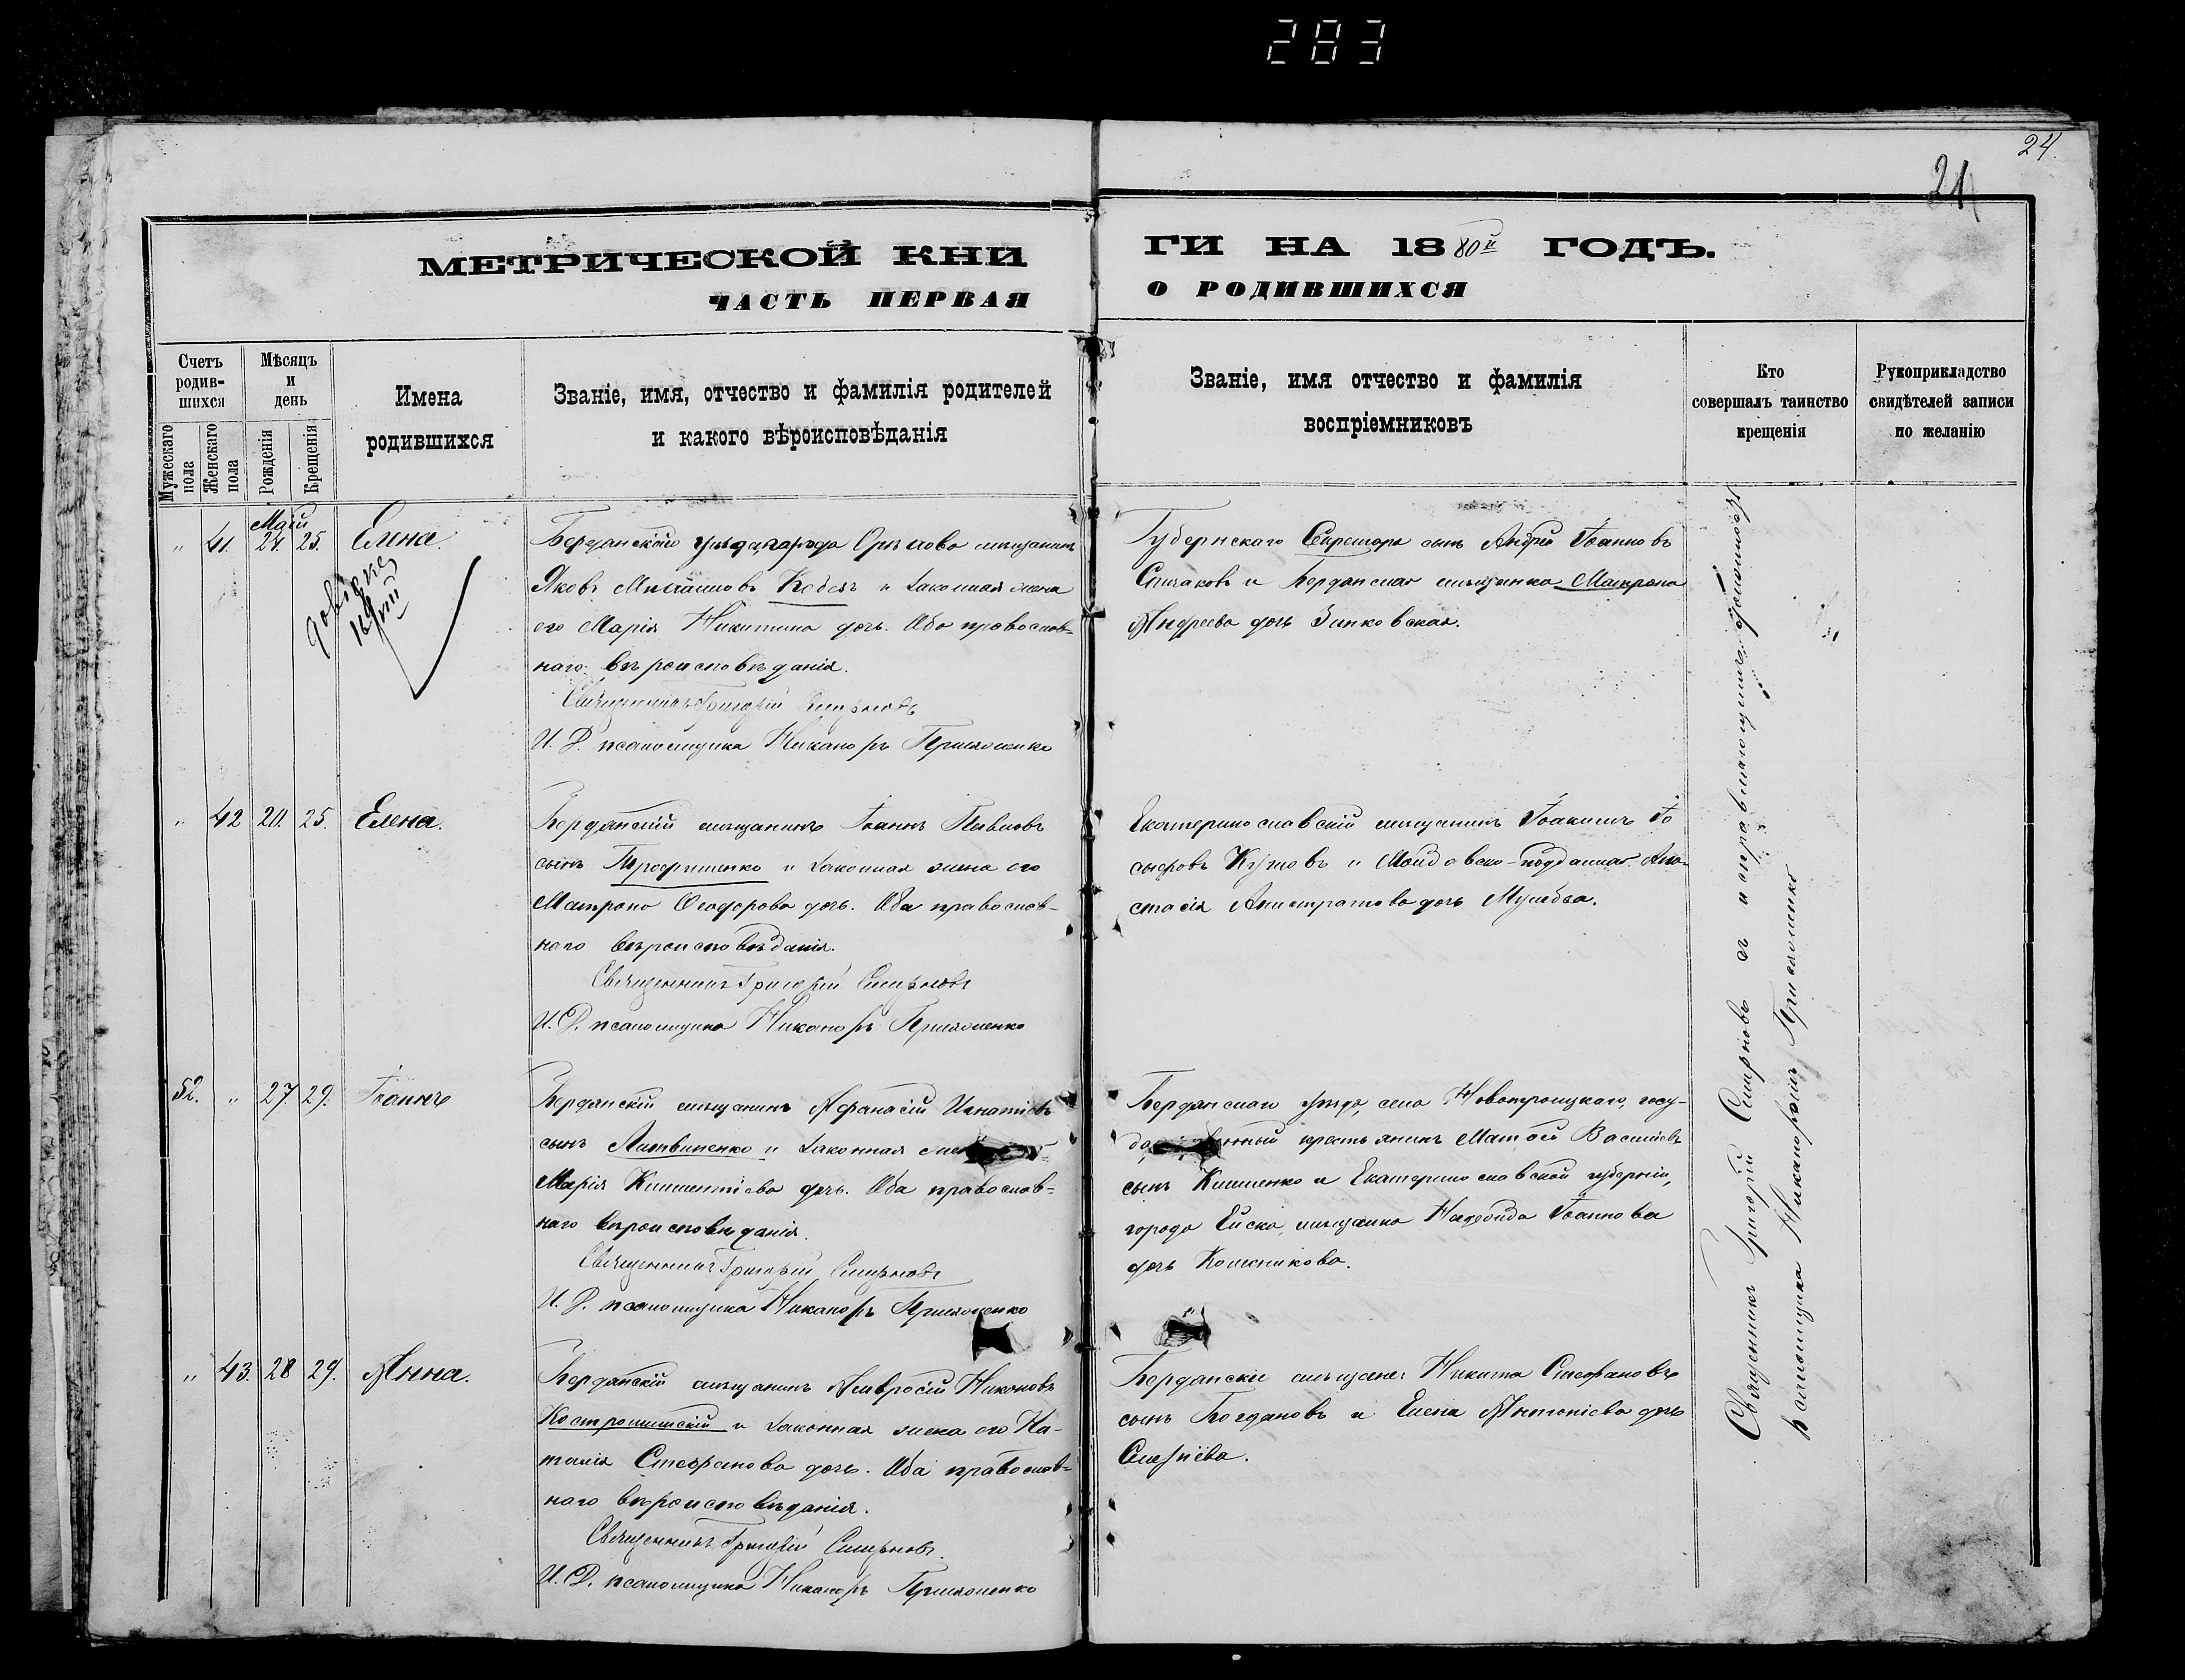 283
24.
21
МЕТРИЧЕСКОЙ КНИ
ГИ НА 1880й ГОДЪ.
ЧАСТЬ ПЕРВАЯ
О РОДИВШИХСЯ
Счетъ родив- шихся
Мужескаго пола
Женскаго пола
Мѣсяцъ и день
Рожденія
Крещенія
Имена родившихся
Званіе, имя, отчество и фамилія родителей
и какого вѣроисповѣданія
Званіе, имя отчество и фамилія
воспріемниковъ
Кто
совершалъ таинство
крещенія
Рукоприкладство
свидѣтелей записи
по желанію
Маій
" 41. 24. 25. Елена.
Бердянскаго уѣзда города Орѣхова мѣщанинъ
Яковъ Кобець и законная жена
его Марія Никитина дочь. Оба православ=
наго вѣроисповѣданія.
Священникъ Григорій Смирновъ
И. Д. псаломщика Никаноръ
Губернскаго Секретаря сынъ Андрей Іоанновъ
и Бердянская мѣщанка Матрона
Андреева дочь Зинковская.
" 42 20. 25. Елена.
Бердянскій мѣщанинъ Іоаннъ Павловъ
сынъ Трофименко и законная жена его
Матрона Ѳеодорова дочь. Оба православ-
наго вѣроисповѣданія.
Священникъ Григорій Смирновъ
И. Д. псаломщика Никаноръ
Екатеринославскій мѣщанинъ Іоакимъ Іо
сифовъ и Молдавско-подданная Ана-
стасія дочь
52. " 27. 29. Іоаннъ
Бердянскій мѣщанинъ Афанасій Игнатіевъ
сынъ Литвиненко и законная
Марія Климентіева дочь. Оба православ=
наго вѣроисповѣданія.
Священникъ Григорій Смирновъ
И. Д. псаломщика Никаноръ
Бердянскаго уѣзда, села Новотроицкаго, госу-
крестьянинъ Матѳей Василіевъ
сынъ Клименко и Екатеринославской губерніи,
города Ейска, мѣщанка Надежда Іоаннова
дочь Колесникова.
" 43. 28 29. Анна.
Бердянскій мѣщанинъ Амвросій Никоновъ
Костромитскій и законная жена его На-
талія Стефанова дочь. Оба православ=
наго вѣроисповѣданія.
Священникъ Григорій Смирновъ
И. Д. псаломщика Никаноръ
Бердянскіе мѣщане: Никита Стефановъ
сынъ Богдановъ и Елена Антоніева дочь
Священникъ Григорій Смирновъ съ исправляющимъ должность
псаломщика Никаноромъ